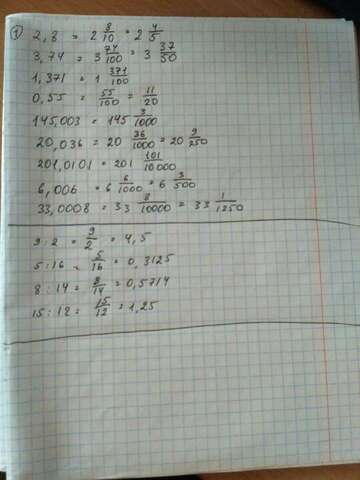 ① 2,8 = 2 8/10 = 2 4/5
3,74 = 3 74/100 = 3 37/50
1,371 = 1 371/100
0,55 = 55/100 = 11/20
145,003 = 145 3/1000
20,036 = 20 36/1000 = 20 9/250
201,0101 = 201 101/10000
6,006 = 6 6/1000 = 6 3/500
33,0008 = 33 8/10000 = 33 1/1250
9 : 2 = 9/2 = 4,5
5 : 16 = 5/16 = 0,3125
8 : 14 = 8/14 = 0,5714
15 : 12 = 15/12 = 1,25